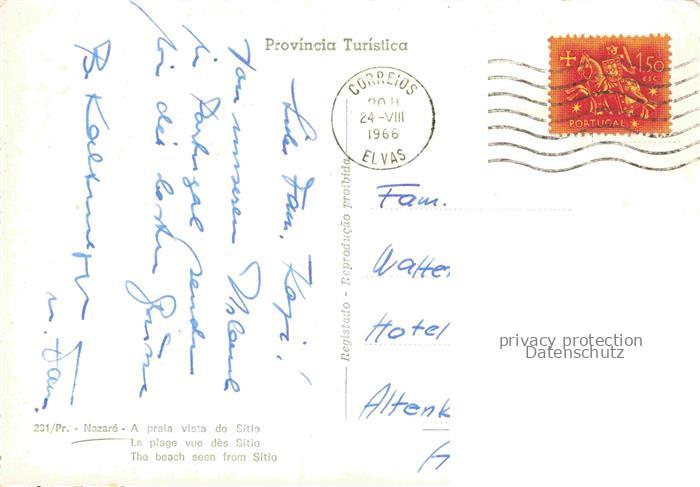 Província Turística
CORREIOS
20 H
24-VIII
1966
ELVAS
1$50
ESC.
PORTUGAL
Liebe Fam.
Von unserem Urlaub
in Portugal senden
wir die besten Grüsse
u. Fam.
Registado - Reprodução proibida
Fam.
Walter
Hotel
Altenk
privacy protection
Datenschutz
231/Pr. - Nazaré - A praia vista do Sítio
La plage vue dès Sítio
The beach seen from Sítio